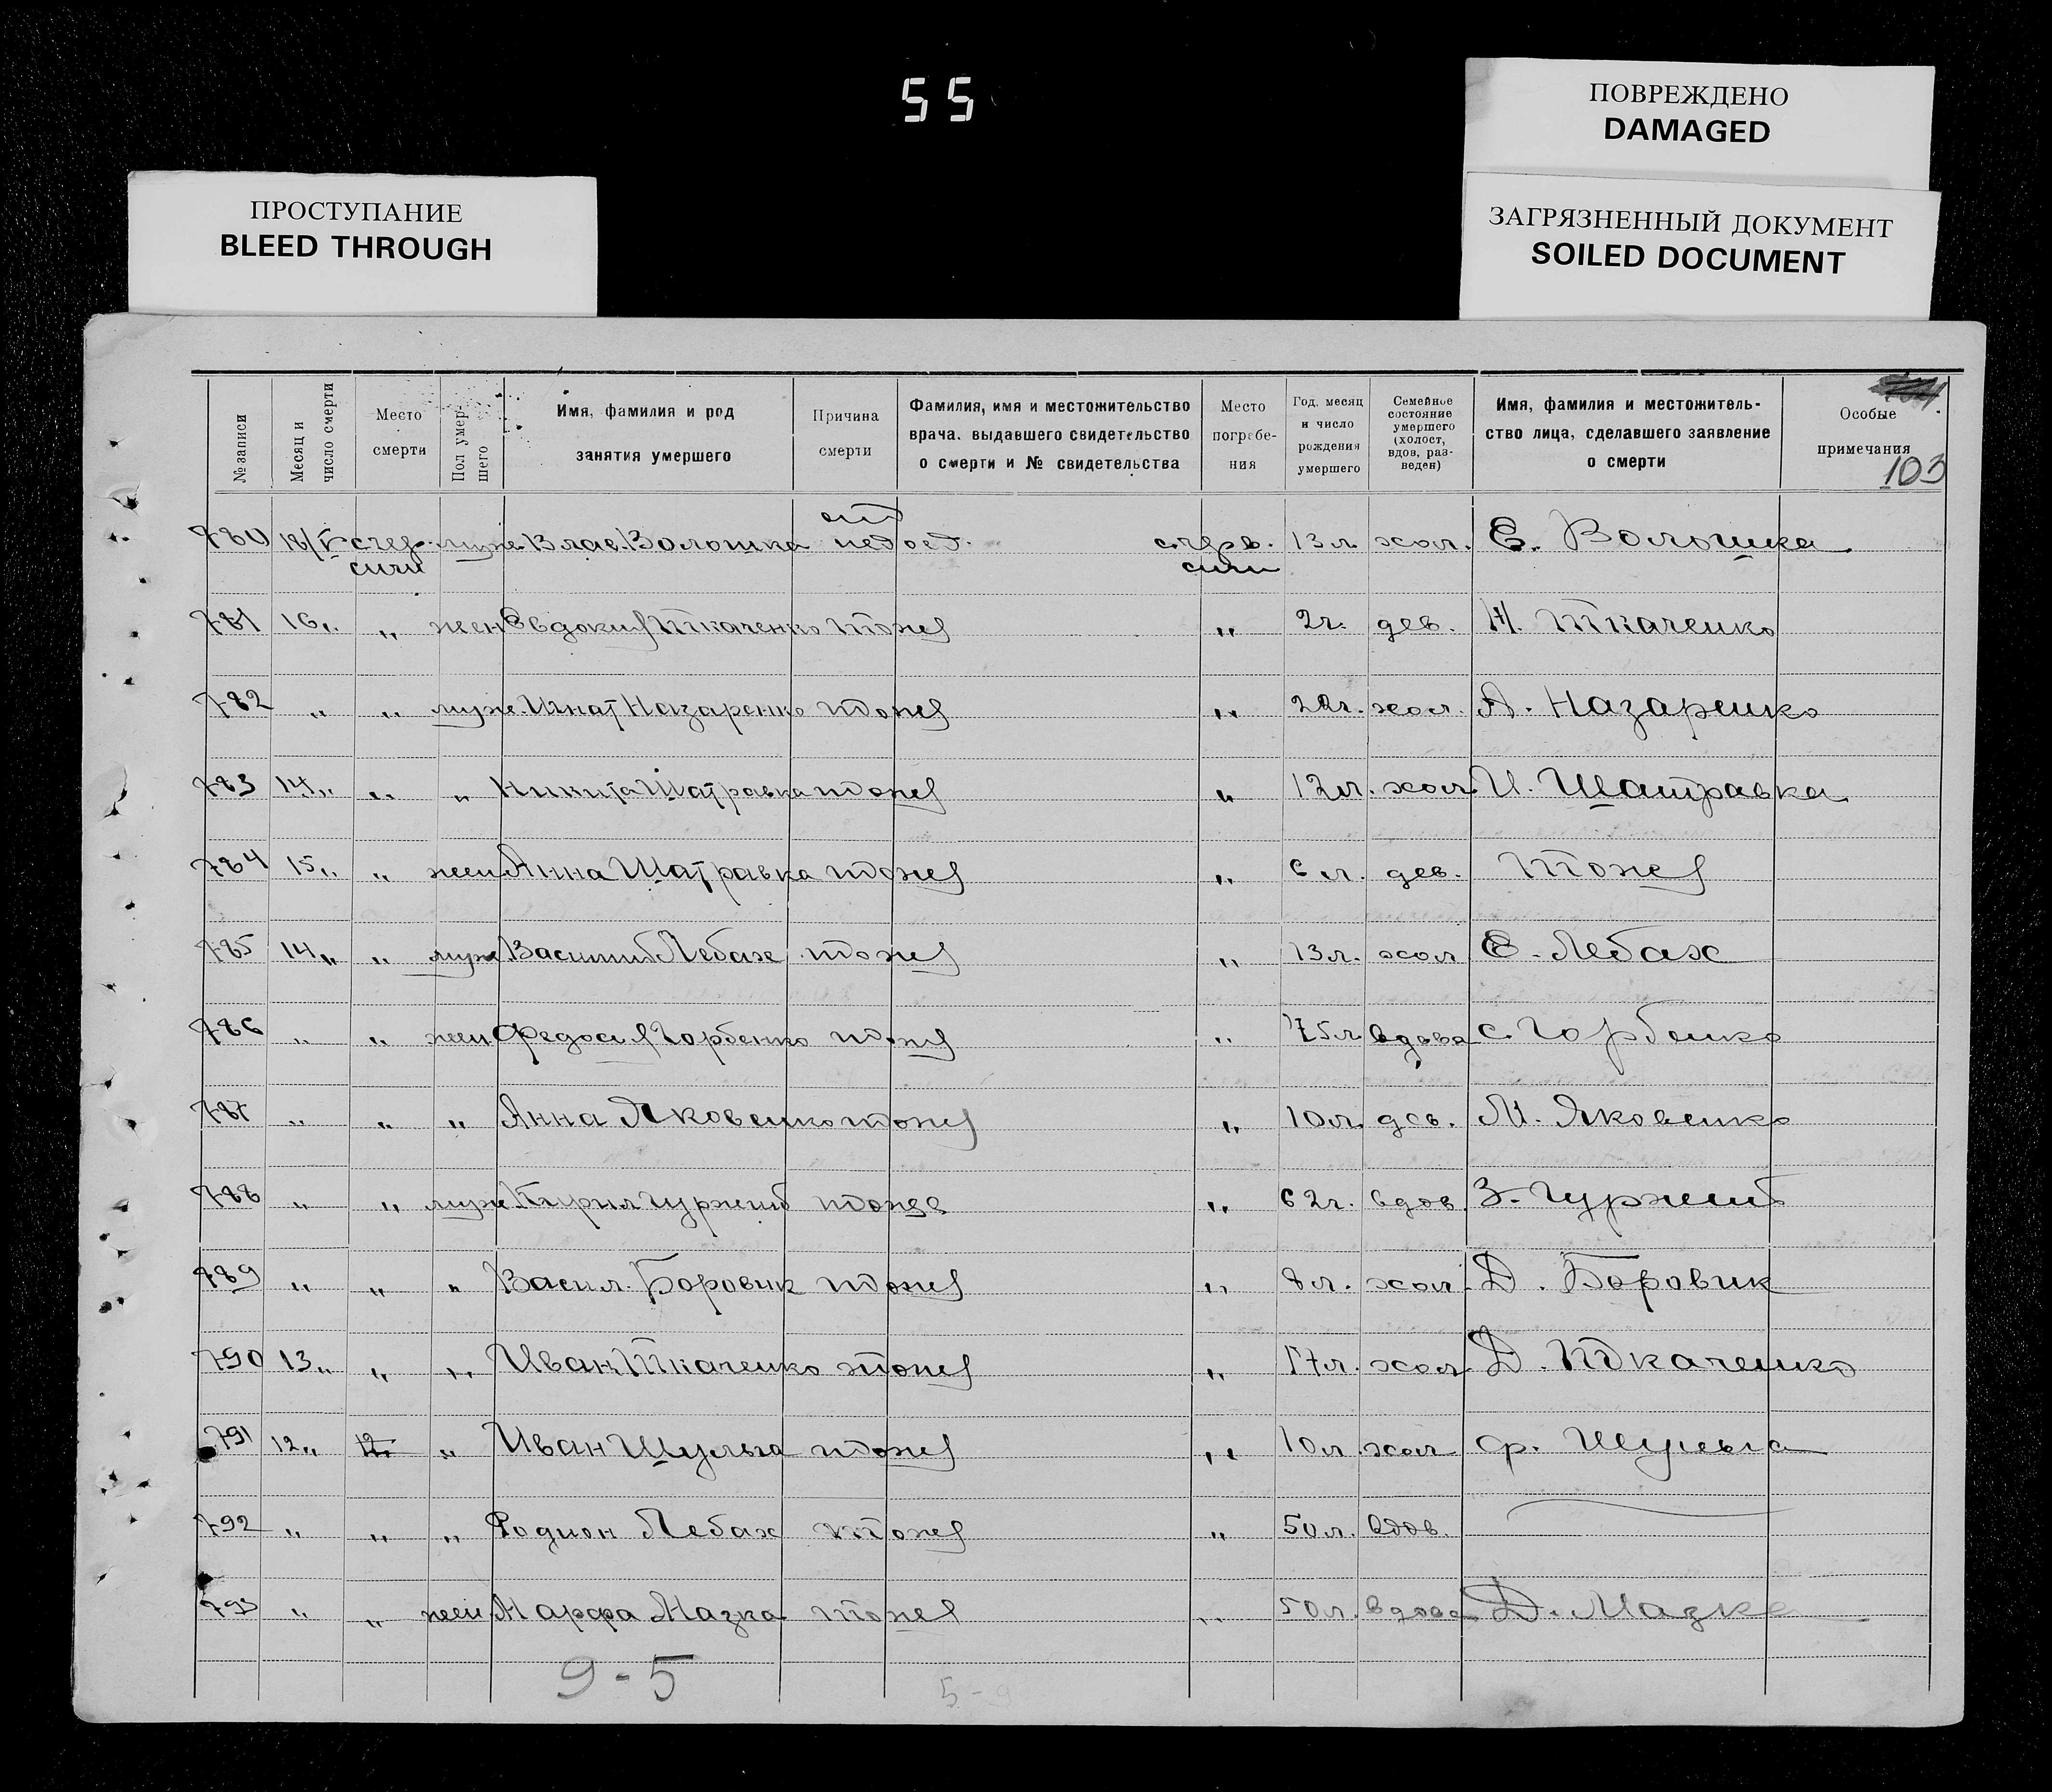 55
ПОВРЕЖДЕНО
DAMAGED
ПРОСТУПАНИЕ
BLEED THROUGH
ЗАГРЯЗНЕННЫЙ ДОКУМЕНТ
SOILED DOCUMENT
№ записи | Месяц и число смерти | Место смерти | Пол умершего | Имя, фамилия и род занятия умершего | Причина смерти | Фамилия, имя и местожительство врача, выдавшего свидетельство о смерти и № свидетельства | Место погребения | Год, месяц и число рождения умершего | Семейное состояние умершего (холост, вдов, разведен) | Имя, фамилия и местожительство лица, сделавшего заявление о смерти | Особые примечания
103
780 18/V муж. Влас. Волошка от недоед. с. черв. 13 л. хол. Е. Волошка
сичи сичи
781 16 " " жен Евдокия Ткаченко тоже " 2 г. дев. Н. Ткаченко
782 " " муж. Игнат Назаренко тоже " 22 г. хол. А. Назаренко
783 14 " " " Никита Шатравка тоже " 12 л. хол. И. Шатравка
784 15 " " жен Анна Шатравка тоже " 6 л. дев. тоже
785 14 " " муж Василий Лебах тоже " 13 л. хол Е. Лебах
786 " " жен. Федосия Горбенко тоже " 75 л. вдова С. Горбенко
787 " " " Анна Яковенко тоже " 10 л. дев. М. Яковенко
788 " " муж Кирил Гуржий тоже " 62 г. вдов. З. Гуржий
789 " " " Васил. Боровик тоже " 8 л. хол. Д. Боровик
790 13 " " " Иван Ткаченко тоже " 17 л. хол. Д. Ткаченко
791 12 " 12 " Иван Шульга тоже " 10 л. хол Ф. Шульга
792 " " " Родион Лебах тоже " 50 л. вдов.
793 " " жен Марфа Мазка тоже " 50 л. вдова Д. Мазка
9-5
5-9